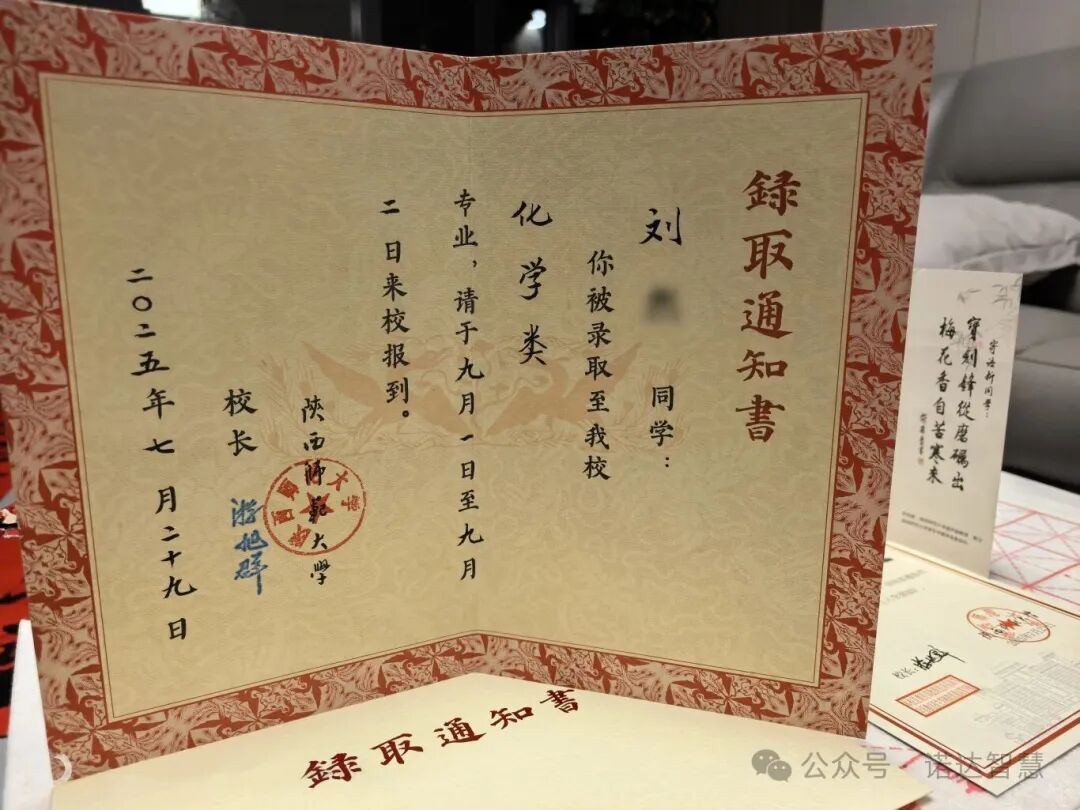 録取通知書
刘 同学：
你被录取至我校
化学类
专业，请于九月一日至九月
二日来校报到。
陕西师范大学
校长 游旭群
二〇二五年七月二十九日
録取通知書
寄语新同学：
寶剑鋒從磨礪出
梅花香自苦寒来
校长：
公众号·诺达智慧